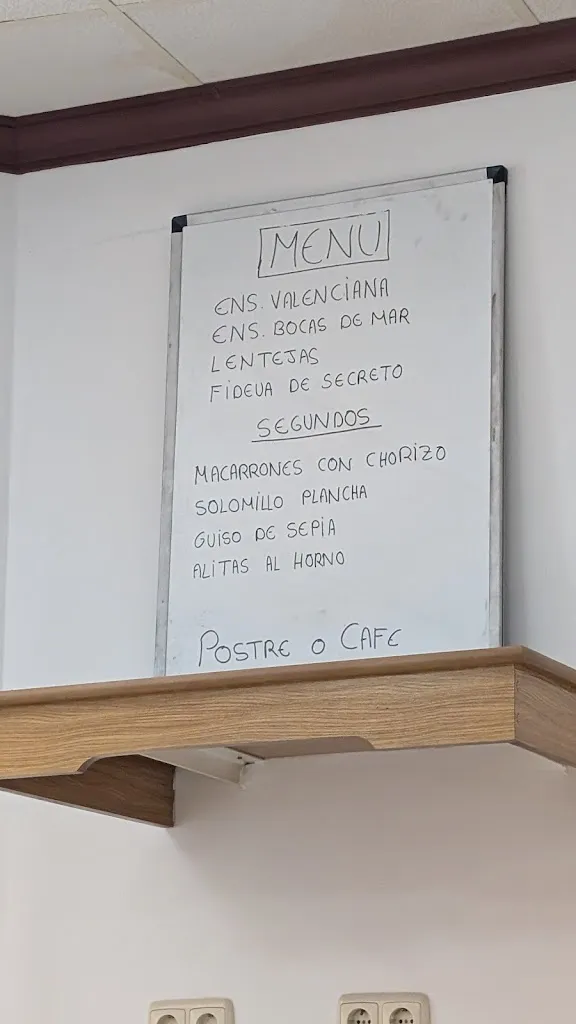 MENU
ENS. VALENCIANA
ENS. BOCAS DE MAR
LENTEJAS
FIDEUA DE SECRETO
SEGUNDOS
MACARRONES CON CHORIZO
SOLOMILLO PLANCHA
GUISO DE SEPIA
ALITAS AL HORNO
POSTRE O CAFE